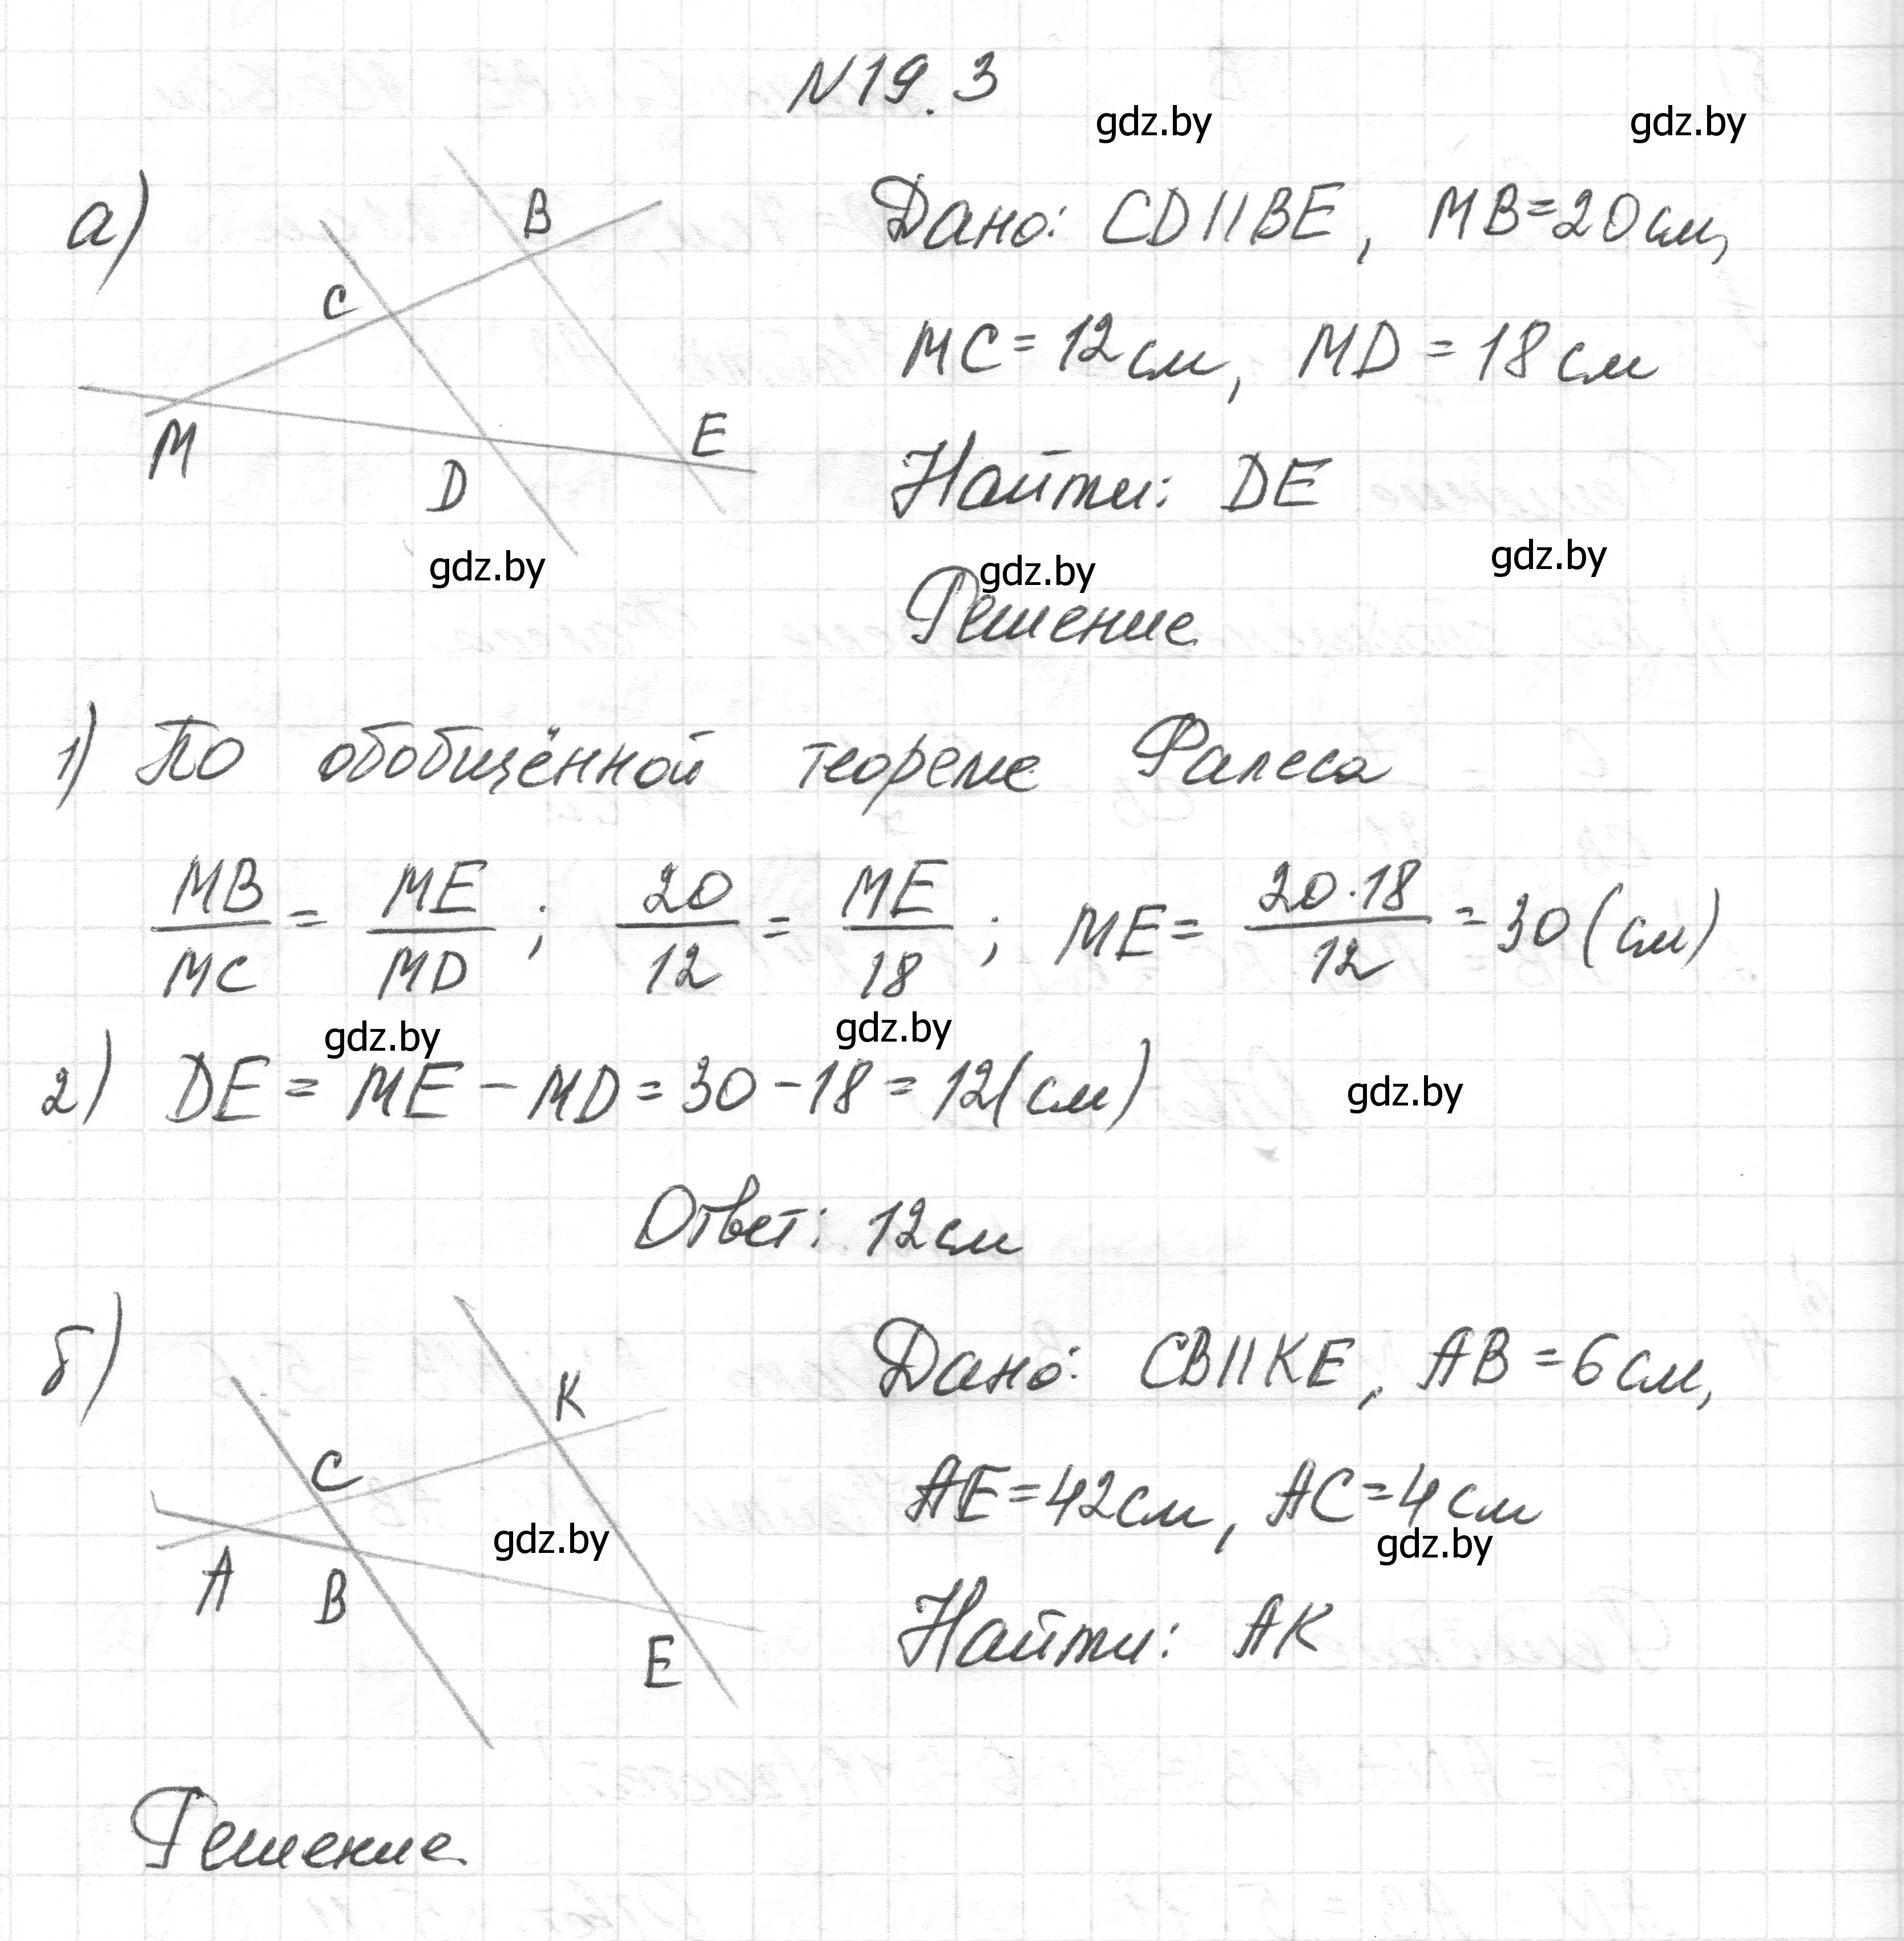 N19.3
gdz.by gdz.by
а)
B
C
M
D
E
Дано: CD||BE, MB=20см,
MC=12см, MD=18см
Найти: DE
gdz.by gdz.by gdz.by
Решение
1) По обобщённой теореме Фалеса
MB/MC = ME/MD; 20/12 = ME/18; ME = 20·18/12 = 30(см)
gdz.by gdz.by
2) DE = ME - MD = 30 - 18 = 12(см)
gdz.by
Ответ: 12см
б)
K
C
A
B
E
gdz.by
Дано: CB||KE, AB=6см,
AE=42см, AC=4см
gdz.by
Найти: AK
Решение